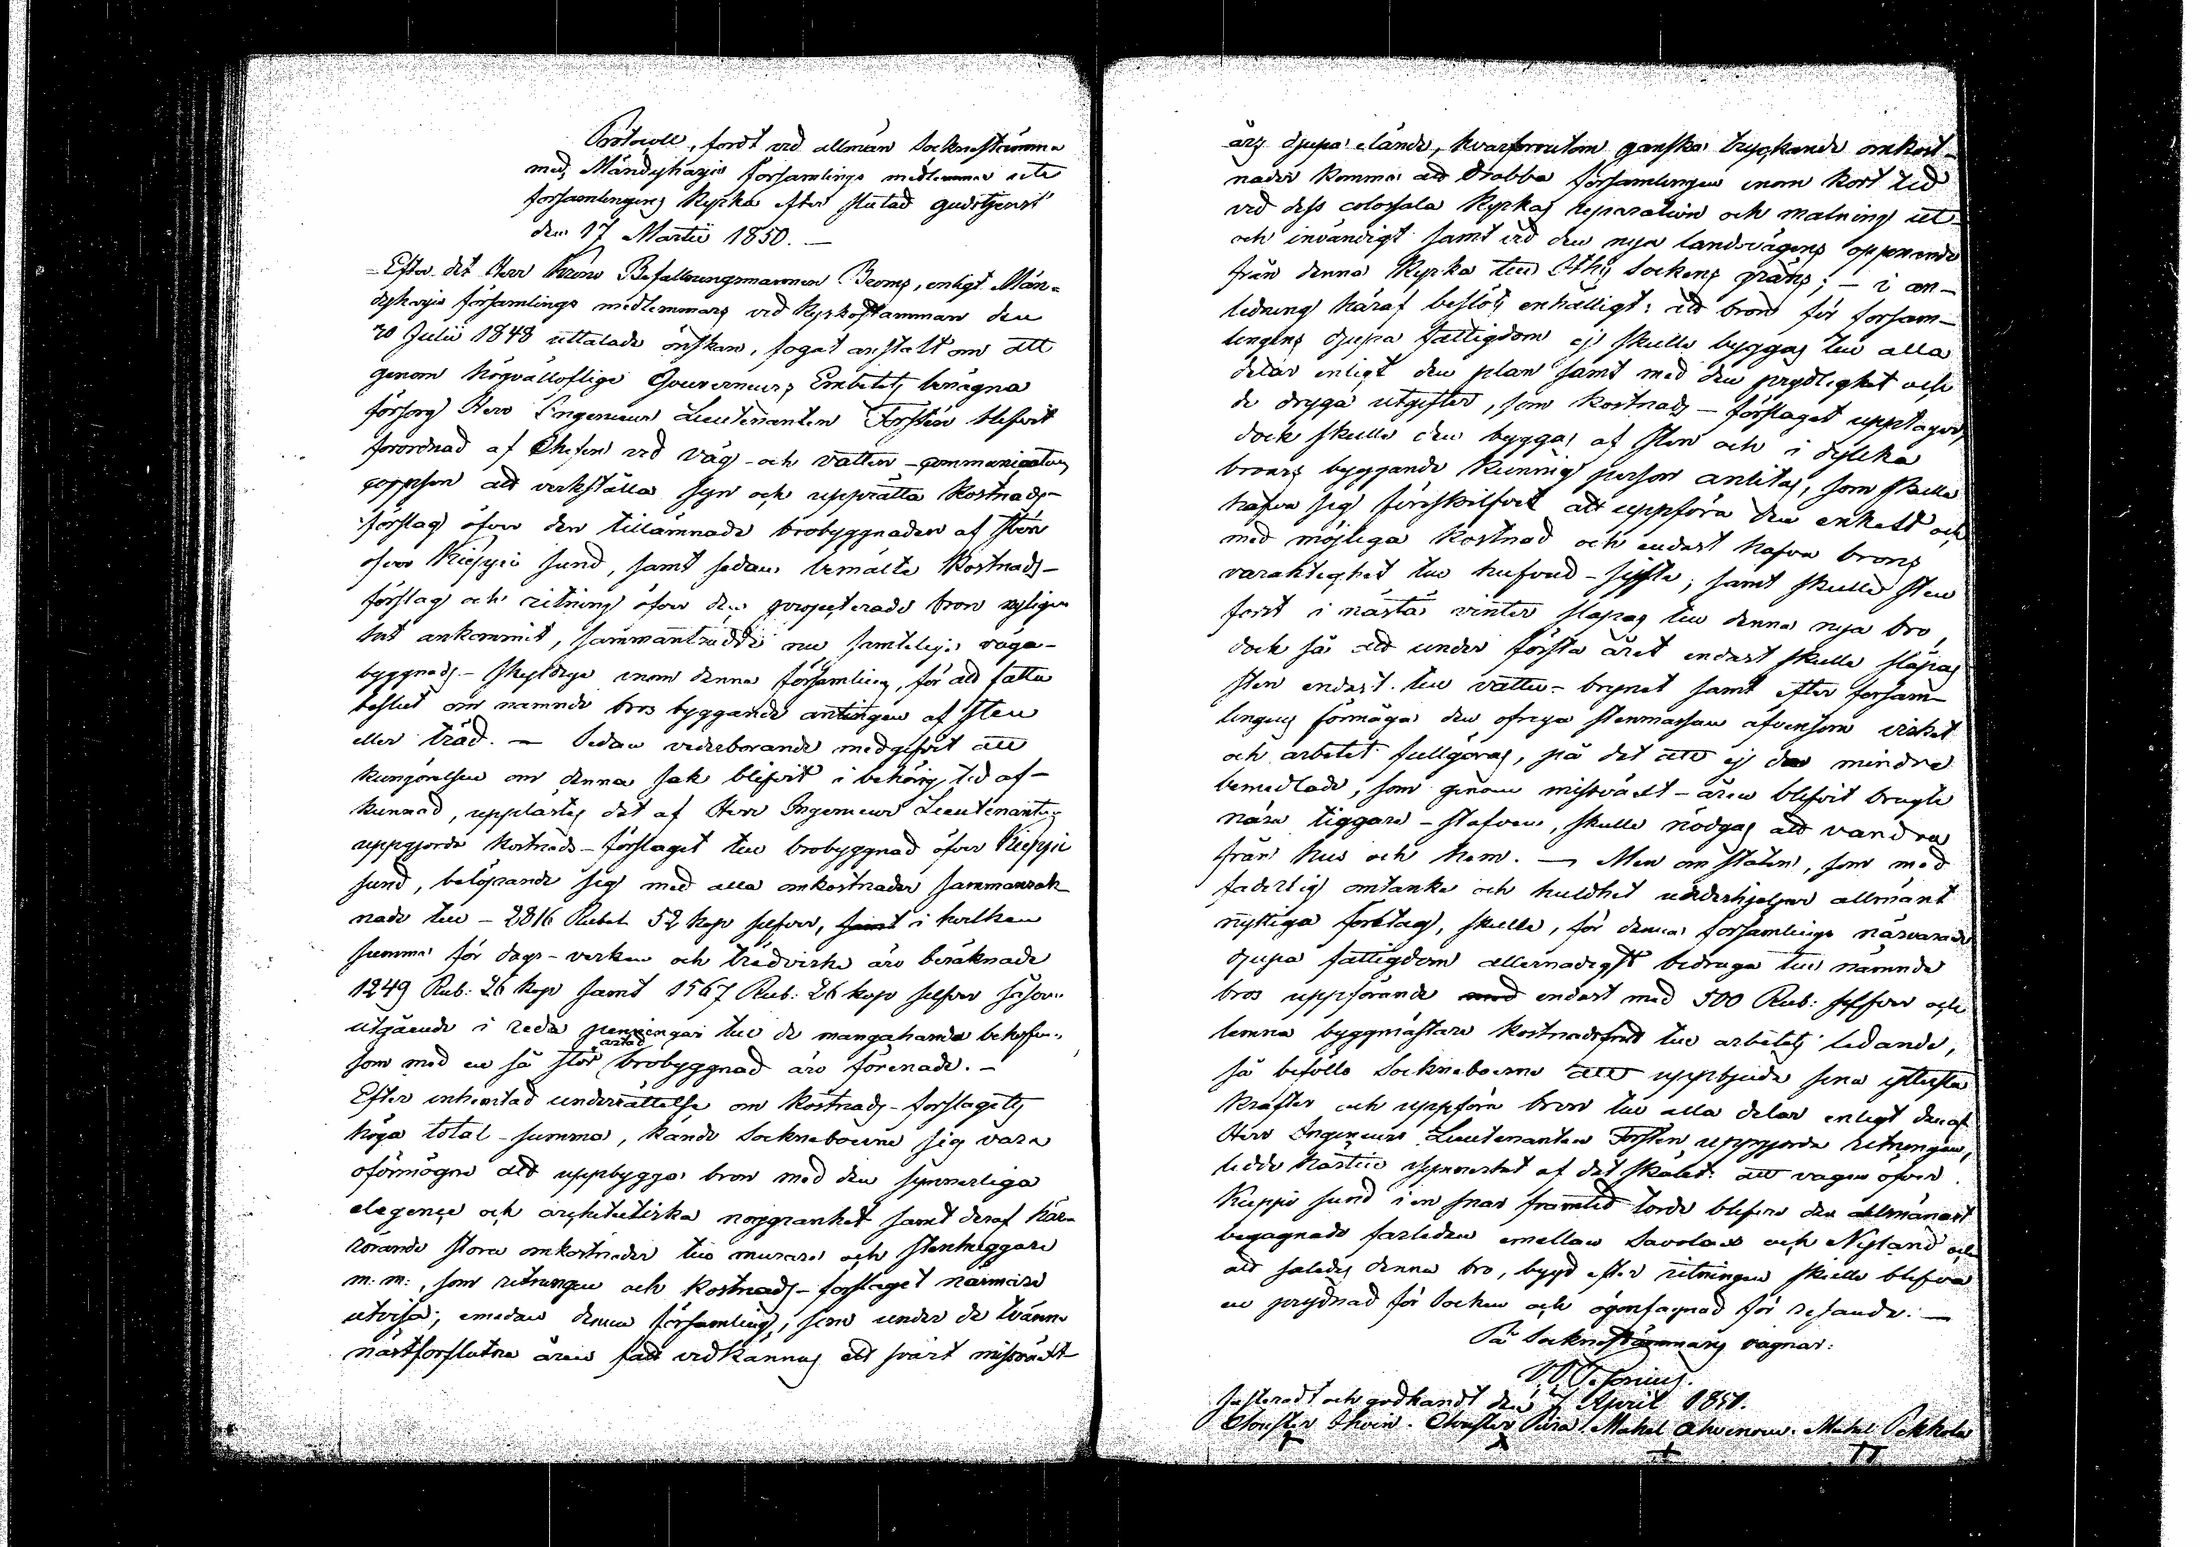 Protocoll, fördt vid allmän Socknestämma
med Mändyharju församlings medlemmar uti
församlingens Kyrka efter slutad gudstjenst
den 17 Martii 1850. —
Efter det Herr Krono Befallningsmannen Bromß, enligt Män-
dyharju församlings medlemmars vid Kyrkostämman den
30 Julii 1848 uttalade önskan, fogat anstalt om att
genom högvälloflige Gouverneurs Embetets benägna
försorg Herr Ingenieur Lieutenanten Forstén blifvit
förordnad af Chefen vid väg- och vatten-communications
corpsen att verkställa syn och upprätta kostnads-
förslag öfver den tillämnade brobyggnaden af sten
öfver Kieppi sund, samt sedan bemälte Kostnads-
förslag och ritning öfver den projecterade bron nyligen
hit ankommit, sammanträdde nu samtelige väga-
byggnads-skyldige inom denna församling, för att fatta
beslut om nämnde bros byggande antingen af sten
eller träd. — Sedan vederbörande medgifvit att
kungörelsen om denna sak blifvit i behörig tid af-
kunnad, upplästes det af Herr Ingenieur Lieutenanten
uppgjorde kostnads-förslaget till brobyggnad öfver Kieppi
sund, belöpande sig med alla omkostnader sammanräk-
nade till — 2816 Rubel 52 kop silfver, samt i hvilken
summa för dags-verken och trädvirke äro beräknade
1249 Rub: 26 kop samt 1567 Rub: 26 kop silfver såsom
utgående i reda penningar till de mångahanda behofven,
som med en så stor artad brobyggnad äro förenade. —
Efter inhemtad underrättelse om kostnads-förslagets
höga total-summa, kände Sockneboerne sig vara
oförmögne att uppbygga bron med den synnerliga
elegence och architektiska noggranhet samt deraf här-
rörande stora omkostnader till murare och stenhuggare
m. m:, som ritningen och kostnads-förslaget närmare
utvisa; emedan denna församling, som under de tvänne
nästförflutne åren fått vidkännas ett svårt missväxt-
års djupa elände, hvarförutom ganska tryckande omkost-
nader komma att drabba församlingen inom kort tid
vid dess colossala Kyrkas reparation och målning ut-
och invändigt samt vid den nya landsvägens öppnande
från denna Kyrka till Sockens gräns; — i an-
ledning häraf beslöts enhälligt: att bron för försam-
lingens djupa fattigdom ej skulle byggas till alla
delar enligt den plan samt med den prydlighet och
de dryga utgifter, som kostnads-förslaget upptager,
dock skulle den byggas af sten och i dylika
broars byggande kunnig person anlitas, som skulle
hafva sig föreskrifvet att uppföra den enkelt och
med möjliga kostnad och endast hafva brons
varaktighet till hufvud-syfte; samt skulle sten
först i nästa vinter släpas till denna nya bro,
dock så att under första året endast skulle släpas
sten endast till vatten-brynet samt efter försam-
lingens förmåga den öfriga stenmassan äfvensom virket
och arbetet fullgöras, på det att ej den mindre
bemedlade, som genom missväxt-åren blifvit bragte
nära tiggare-stafven, skulle nödgas att vandra
från hus och hem. — Men om staten, som med
faderlig omtanke och huldhet understödjer allmänt
nyttiga företag, skulle, för denna församlings närvarande
djupa fattigdom allernådigst bidraga till nämnde
bros uppförande med endast med 500 Rub: silfver och
lemna byggmästare kostnadsfritt till arbetets ledande,
så beföllo Sockneboerne att uppbjuda sina yttersta
krafter och uppföra bron till alla delar enligt den af
Herr Ingenieur Lieutenanten Forstén uppgjorde ritningen,
ledde härtill uppmuntrat af det skälet: att vägen öfver
Kieppi sund i en snar framtid torde blifva den allmänast
begagnade farleden emellan Savolax och Nyland och
att således denna bro, bygd efter ritningen skulle blifva
en prydnad för Socken och ögonfägnad för resande. —
På Socknestämmans vägnar:
Justeradt och godkändt den 7 April 1850.
Christer Ihvin. Christer Pura. Mahel Ahvenoin. Mahel Pekkola